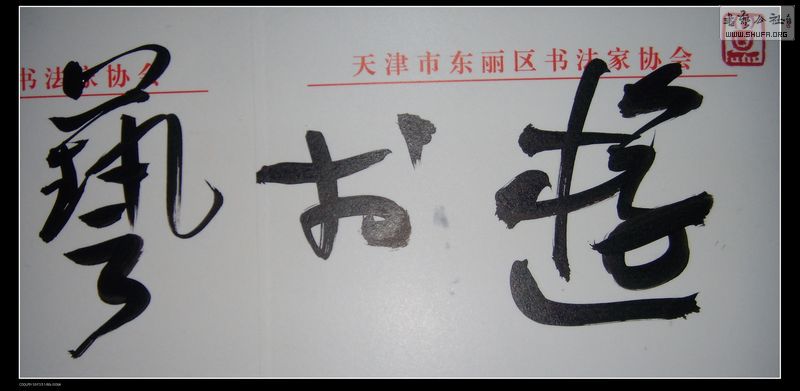 书法家协会
天津市东丽区书法家协会
遊於藝
書藝公社
WWW.SHUFA.ORG